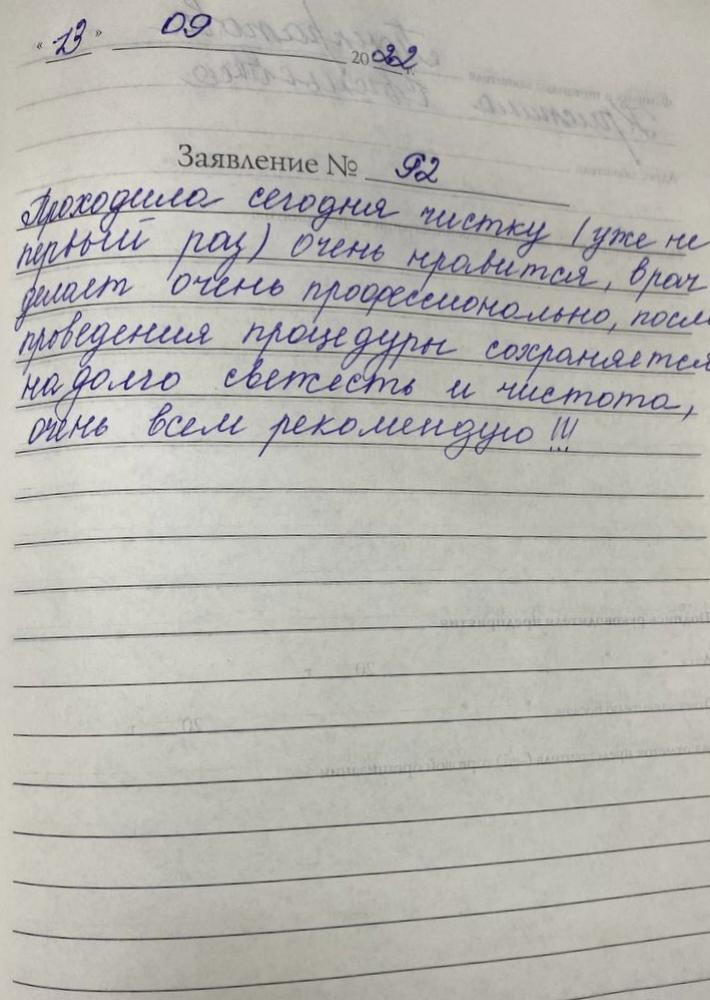 «13» 09 2022 г.
Заявление № 92
Проходила сегодня чистку (уже не
первый раз) очень нравится, врач
делает очень профессионально, посл
проведения процедуры сохраняется
на долго свежесть и чистота,
очень всем рекомендую!!!